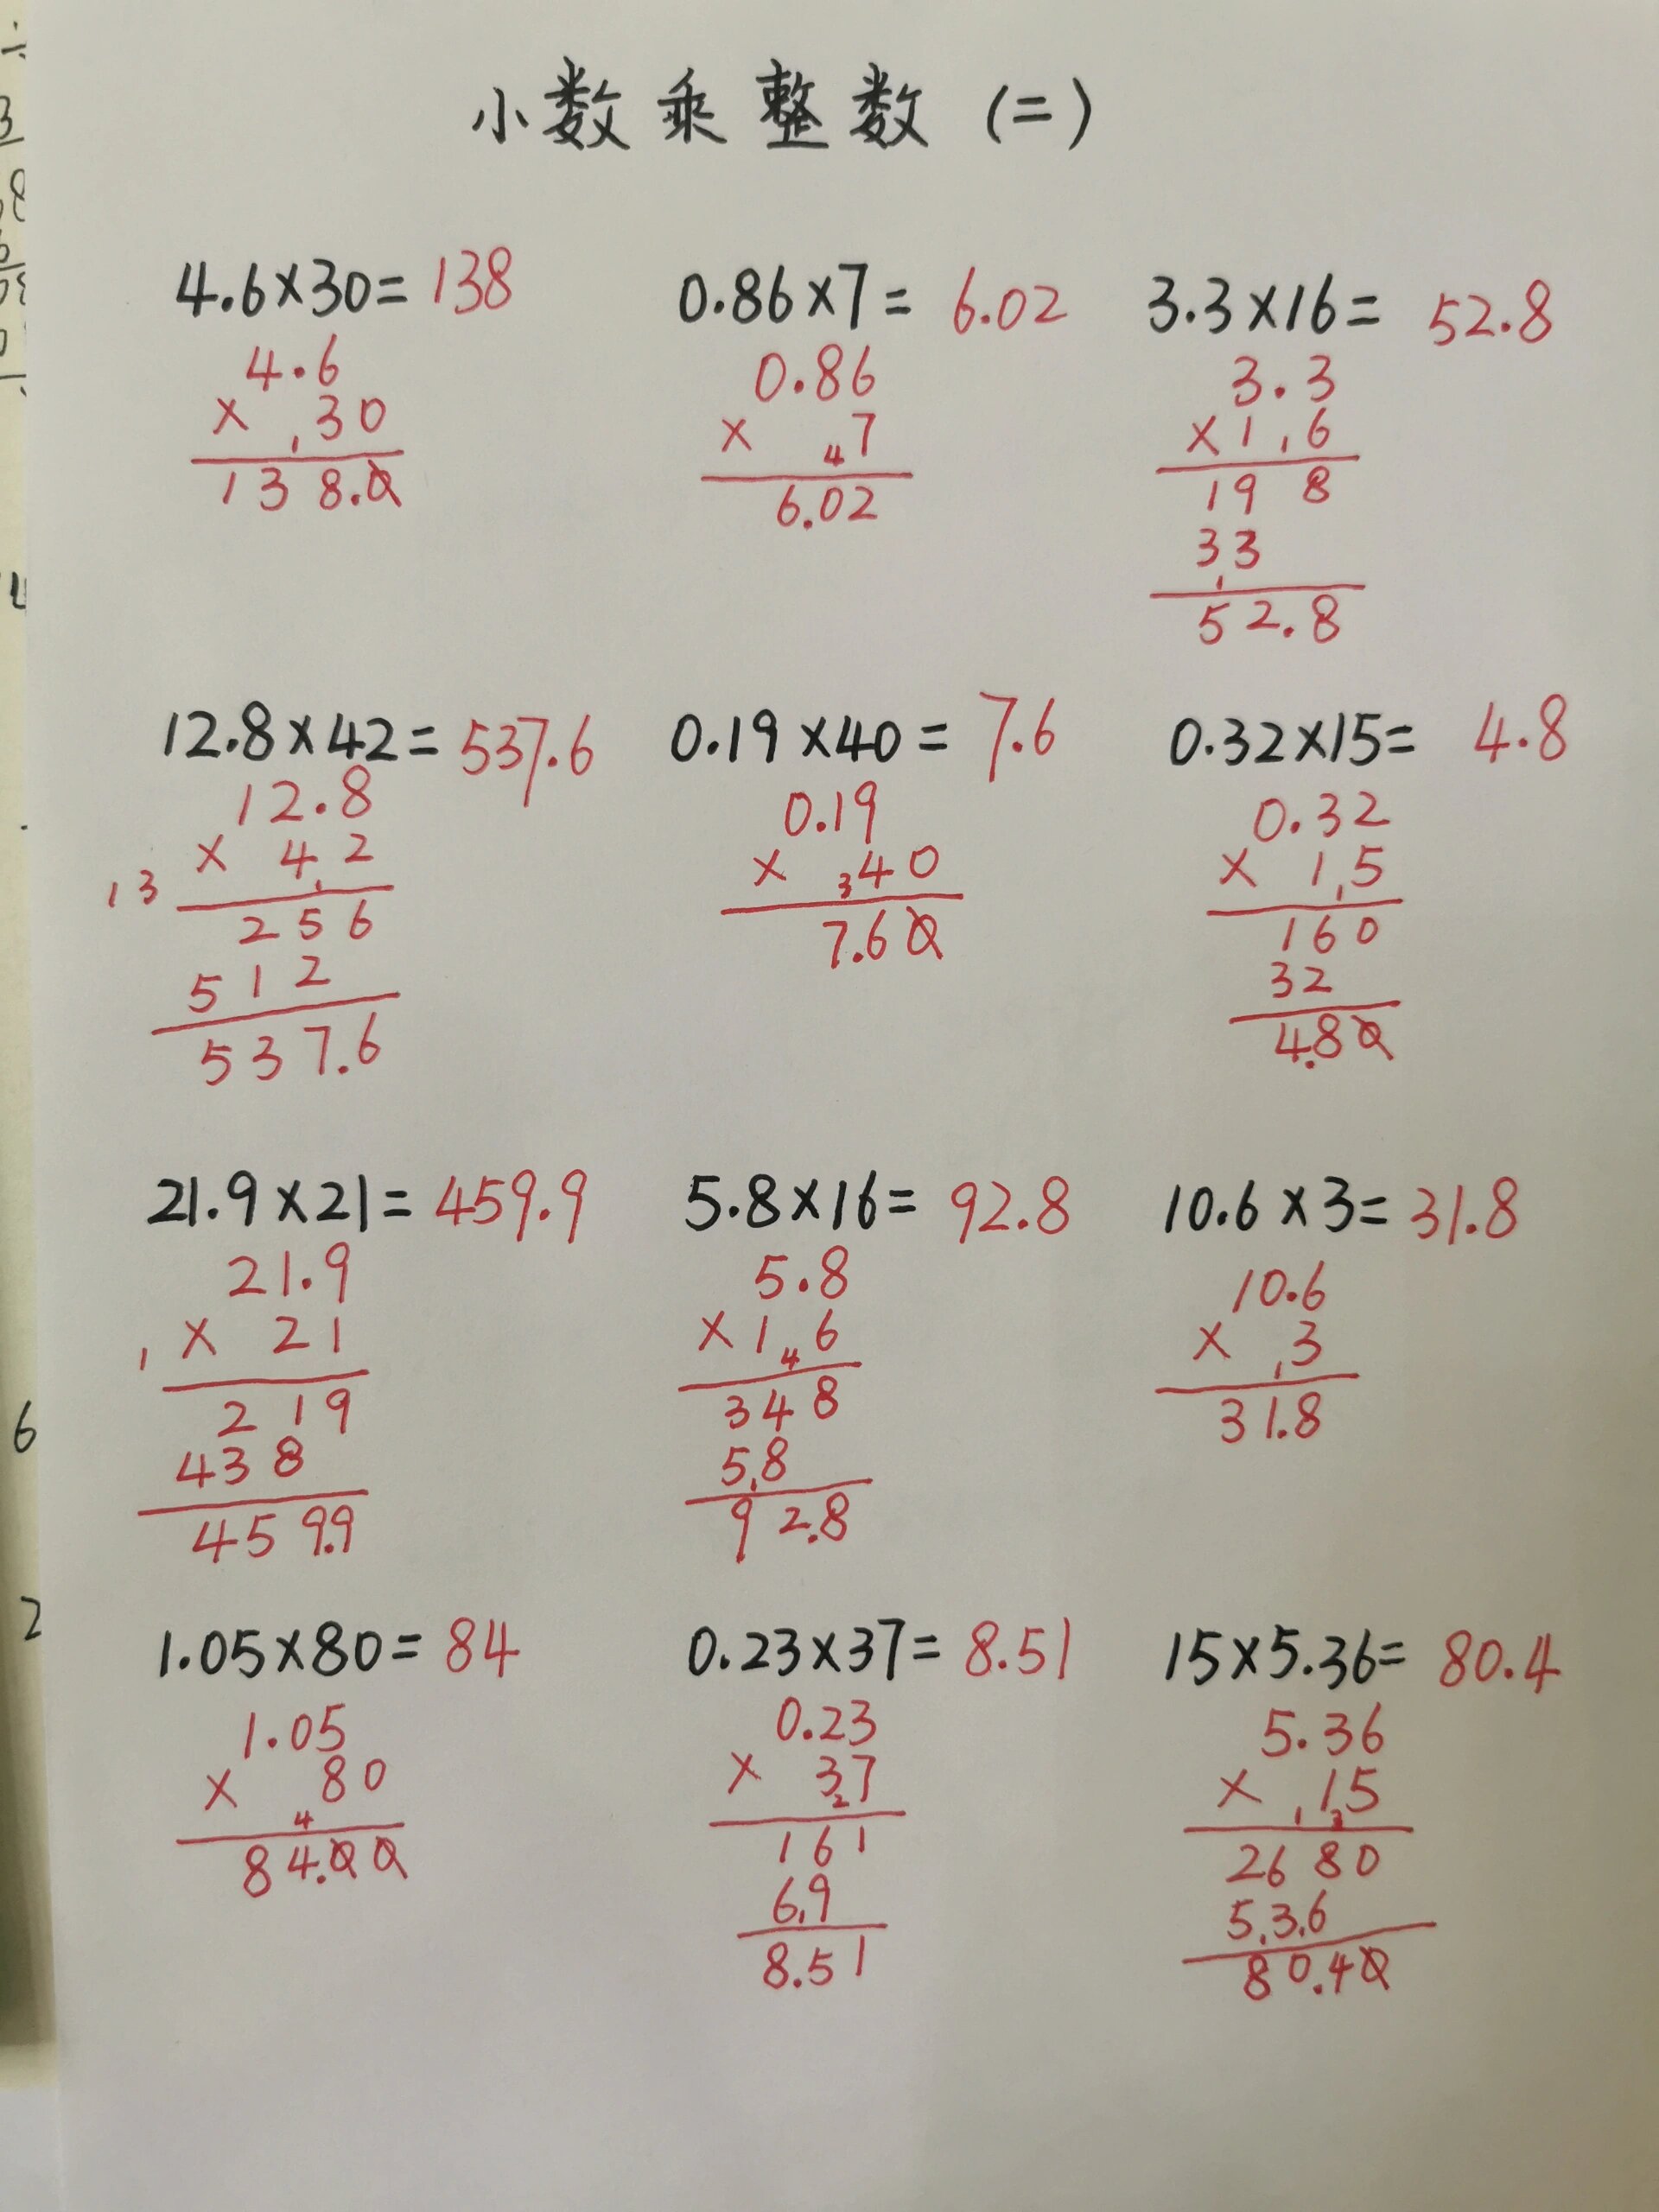 小数乘整数(二)
4.6×30=138
4.6
× 30
138.0
0.86×7=6.02
0.86
× 7
6.02
3.3×16=52.8
3.3
×16
198
33
52.8
12.8×42=537.6
12.8
× 42
13
256
512
537.6
0.19×40=7.6
0.19
× 40
7.60
0.32×15=4.8
0.32
× 15
160
32
4.80
21.9×21=459.9
21.9
× 21
1
219
438
459.9
5.8×16=92.8
5.8
×16
348
58
92.8
10.6×3=31.8
10.6
× 3
31.8
1.05×80=84
1.05
× 80
84.00
0.23×37=8.51
0.23
× 37
161
69
8.51
15×5.36=80.4
5.36
× 15
2680
536
80.40